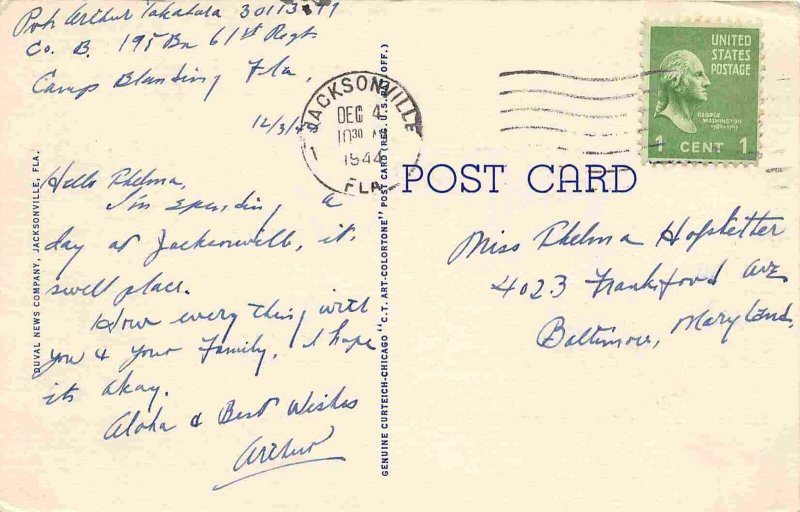 Pvt Arthur Takahara 30113
Co. B. 195 Bn 61st Regt
Camp Blanding Fla,
12/3/44
Hello Thelma,
I'm spending a
day at Jacksonville, it
swell place.
How everything with
you & your Family, I hope
its okay.
Aloha & Best Wishes
Arthur
DUVAL NEWS COMPANY, JACKSONVILLE, FLA.
GENUINE CURTEICH-CHICAGO "C.T. ART-COLORTONE" POST CARD (REG. U.S. PAT. OFF.)
JACKSONVILLE
DEC 4
1030
1944
FLA.
1
UNITED
STATES
POSTAGE
GEORGE
WASHINGTON
1 CENT 1
POST CARD
Miss Thelma Hofstetter
4023 Frankford Ave
Baltimore, Maryland.